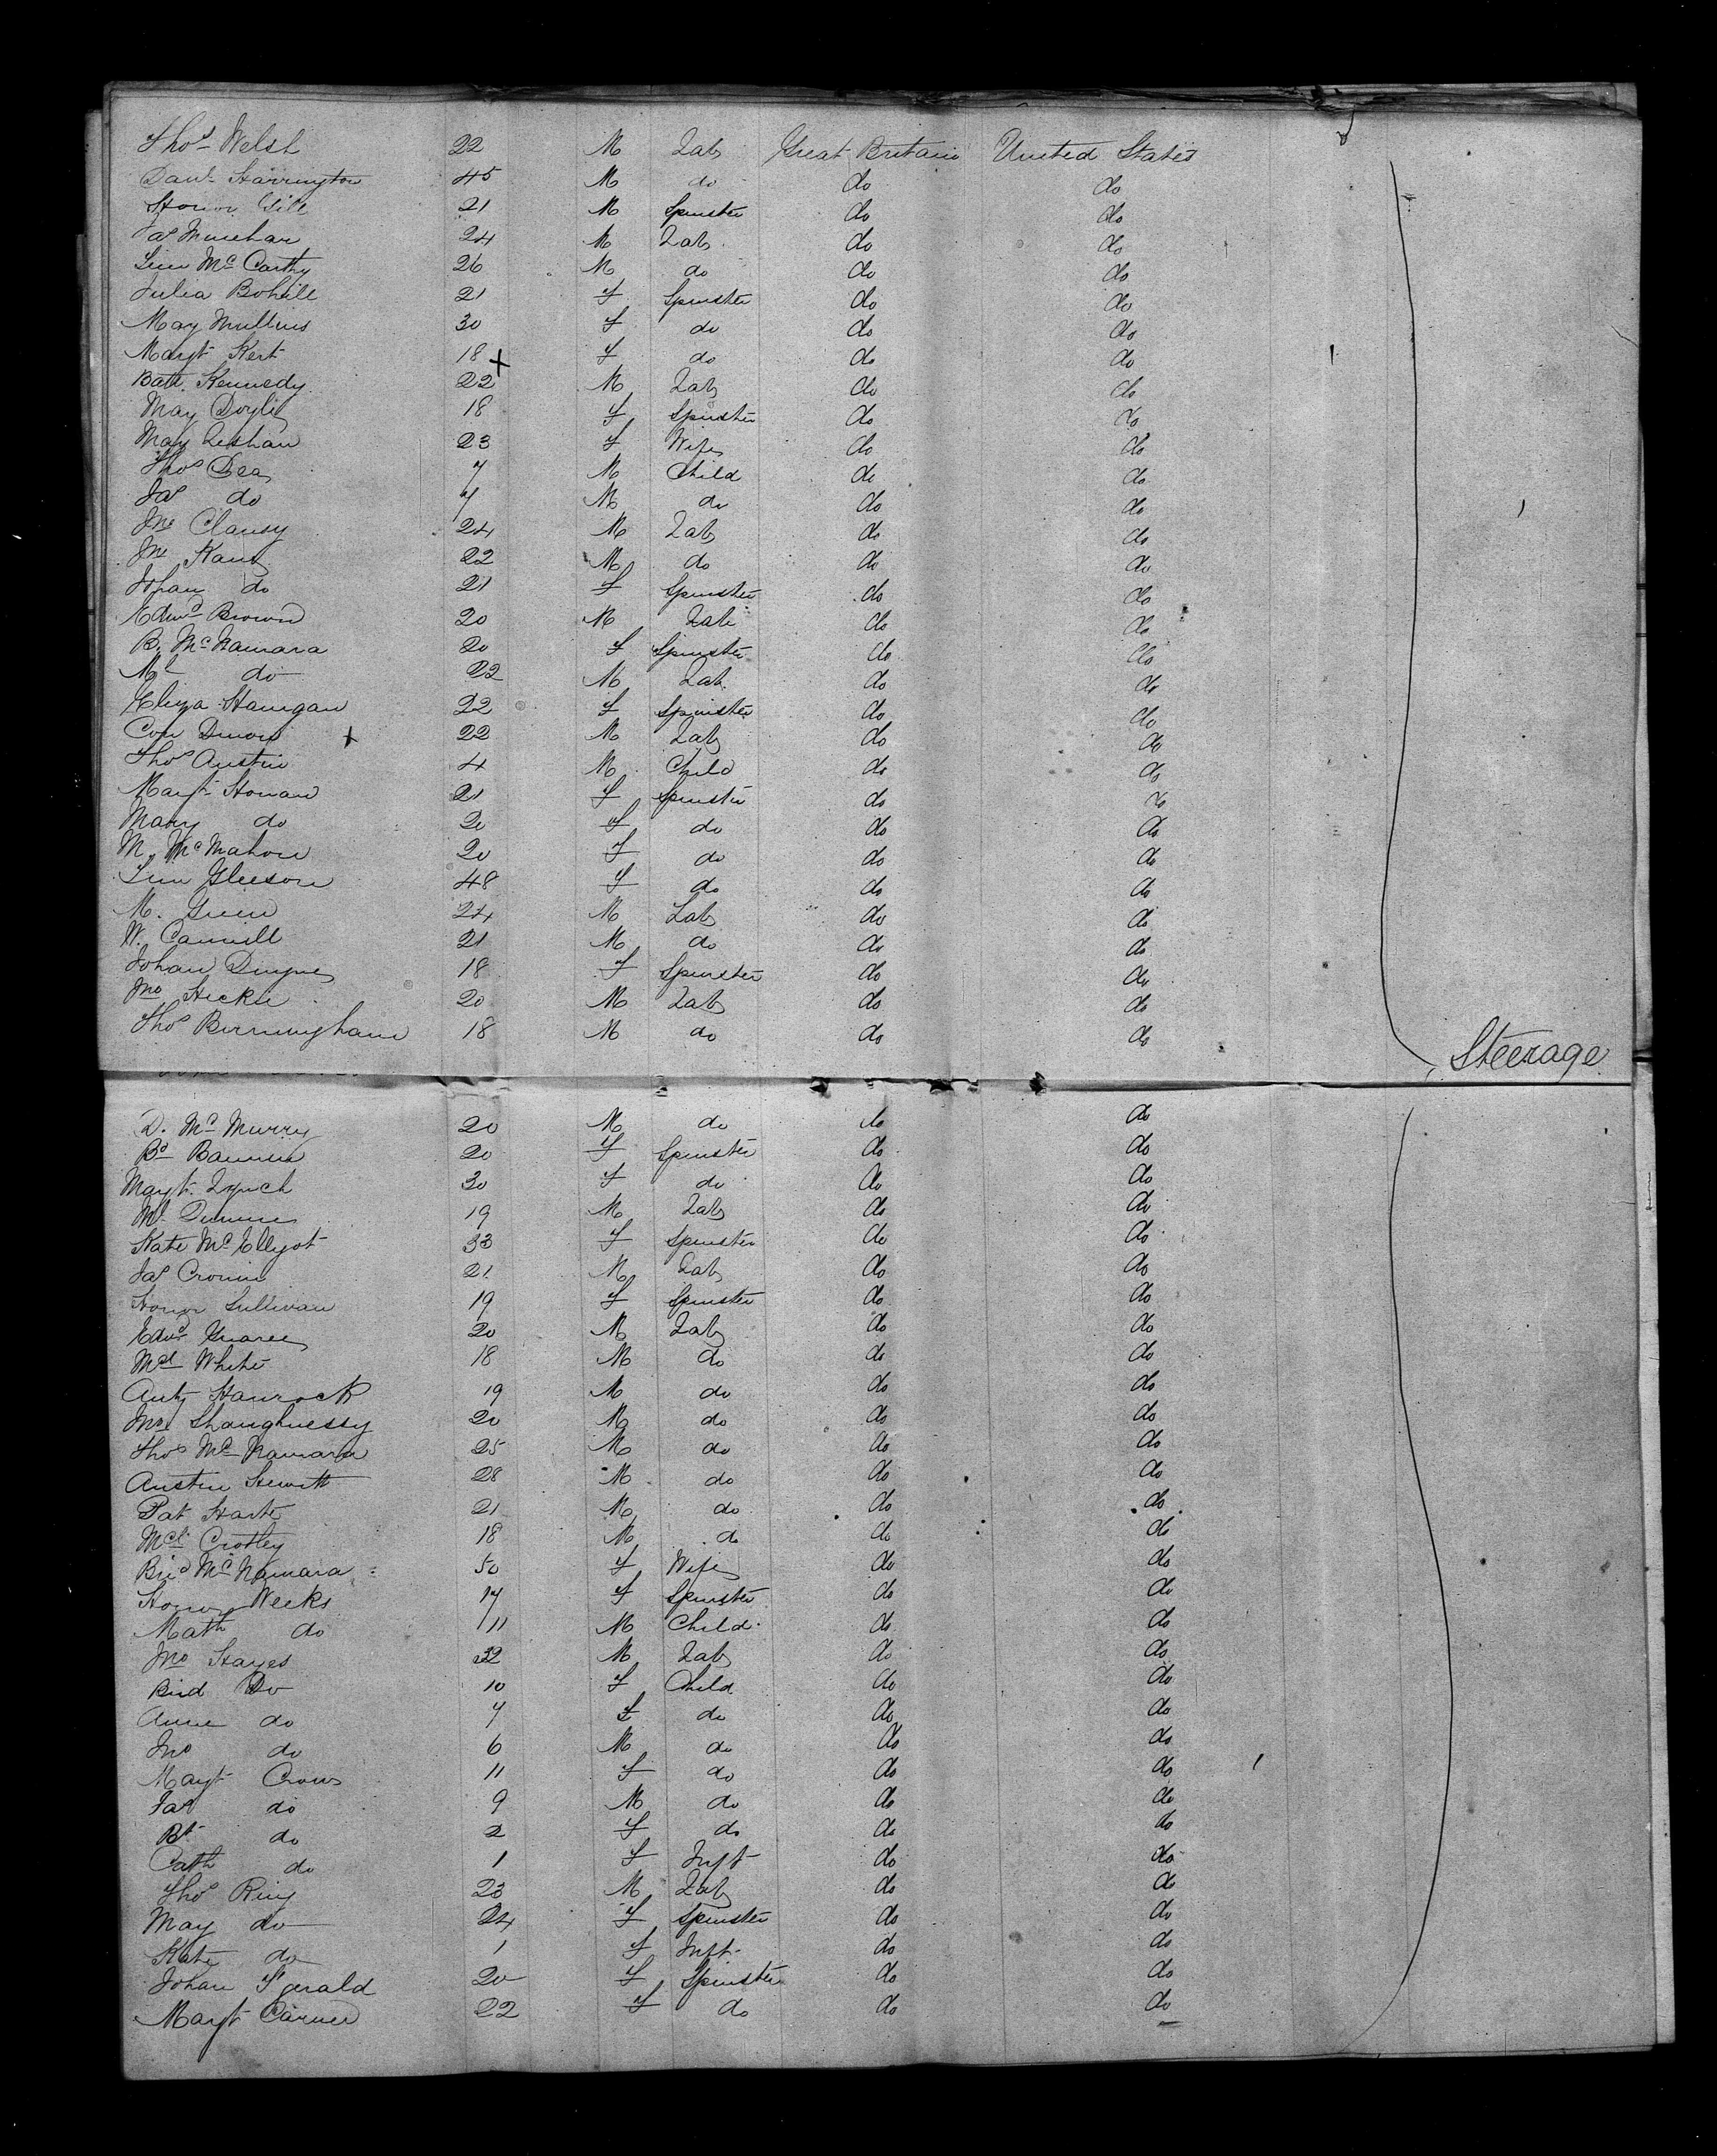 Thos Welsh 22 M Lab Great Britain United States
Danl Harrington 45 M do do do
Honor Gill 21 M Spinster do do
Jas 24 M Lab do do
McCarthy 26 M do do do
Julia Bohill 21 F Spinster do do
May Mullins 30 F do do do
Margt Kert 18 F do do do
Batt. Kennedy 22 M Lab do do
May Doyle 18 F Spinster do do
May Leshan 23 F Wife do do
Thos Dea 7 M Child do do
Jas do 4 M do do do
Jno Clancy 24 M Lab do do
Jno Kane 22 M do do do
Johan do 21 F Spinster do do
Edwd Brown 20 M Lab do do
B. McNamara 20 F Spinster do do
Ml do 22 M Lab. do do
Eliza Hanigan 22 F Spinster do do
Con 22 M Lab do do
Thos Austin 4 M Child do do
Margt Honan 21 F Spinster do do
Mary do 20 F do do do
M. McMahon 20 F do do do
Gleeson 48 F do do do
M. Green 24 M Lab do do
W. Cannill 21 M do do do
Johan 18 F Spinster do do
Jno Hickie 20 M Lab do do
Thos Birmingham 18 M do do do
Steerage
D. McMurry 20 M do do do
Bd 20 F Spinster do do
Margt. Lynch 30 F do do do
Ml 19 M Lab do do
Kate McEllgot 33 F Spinster do do
Jas Cronin 21 M Lab do do
Honor Sullivan 19 F Spinster do do
Edwd 20 M Lab do do
Mcl White 18 M do do do
Anty Hanrock 19 M do do do
Jno Shaughnessy 20 M do do do
Thos McNamara 25 M do do do
Austin Hewitt 28 M do do do
Pat Harte 21 M do do do
Mcl Crotley 18 M do do do
Brid McNamara 50 F Wife do do
Honor Weeks 17 F Spinster do do
Math do 11 M Child do do
Jno Hayes 32 M Lab do do
Brid Do 10 F Child do do
Anne do 7 F do do do
Jno do 6 M do do do
Margt Crow 11 F do do do
Jas do 9 M do do do
Bt do 2 F do do do
Cath do 1 F Inft do do
Thos Ring 23 M Lab do do
May do 24 F Spinster do do
Kate do 1 F Inft do do
Johan F'gerald 20 F Spinster do do
Margt 22 F do do do